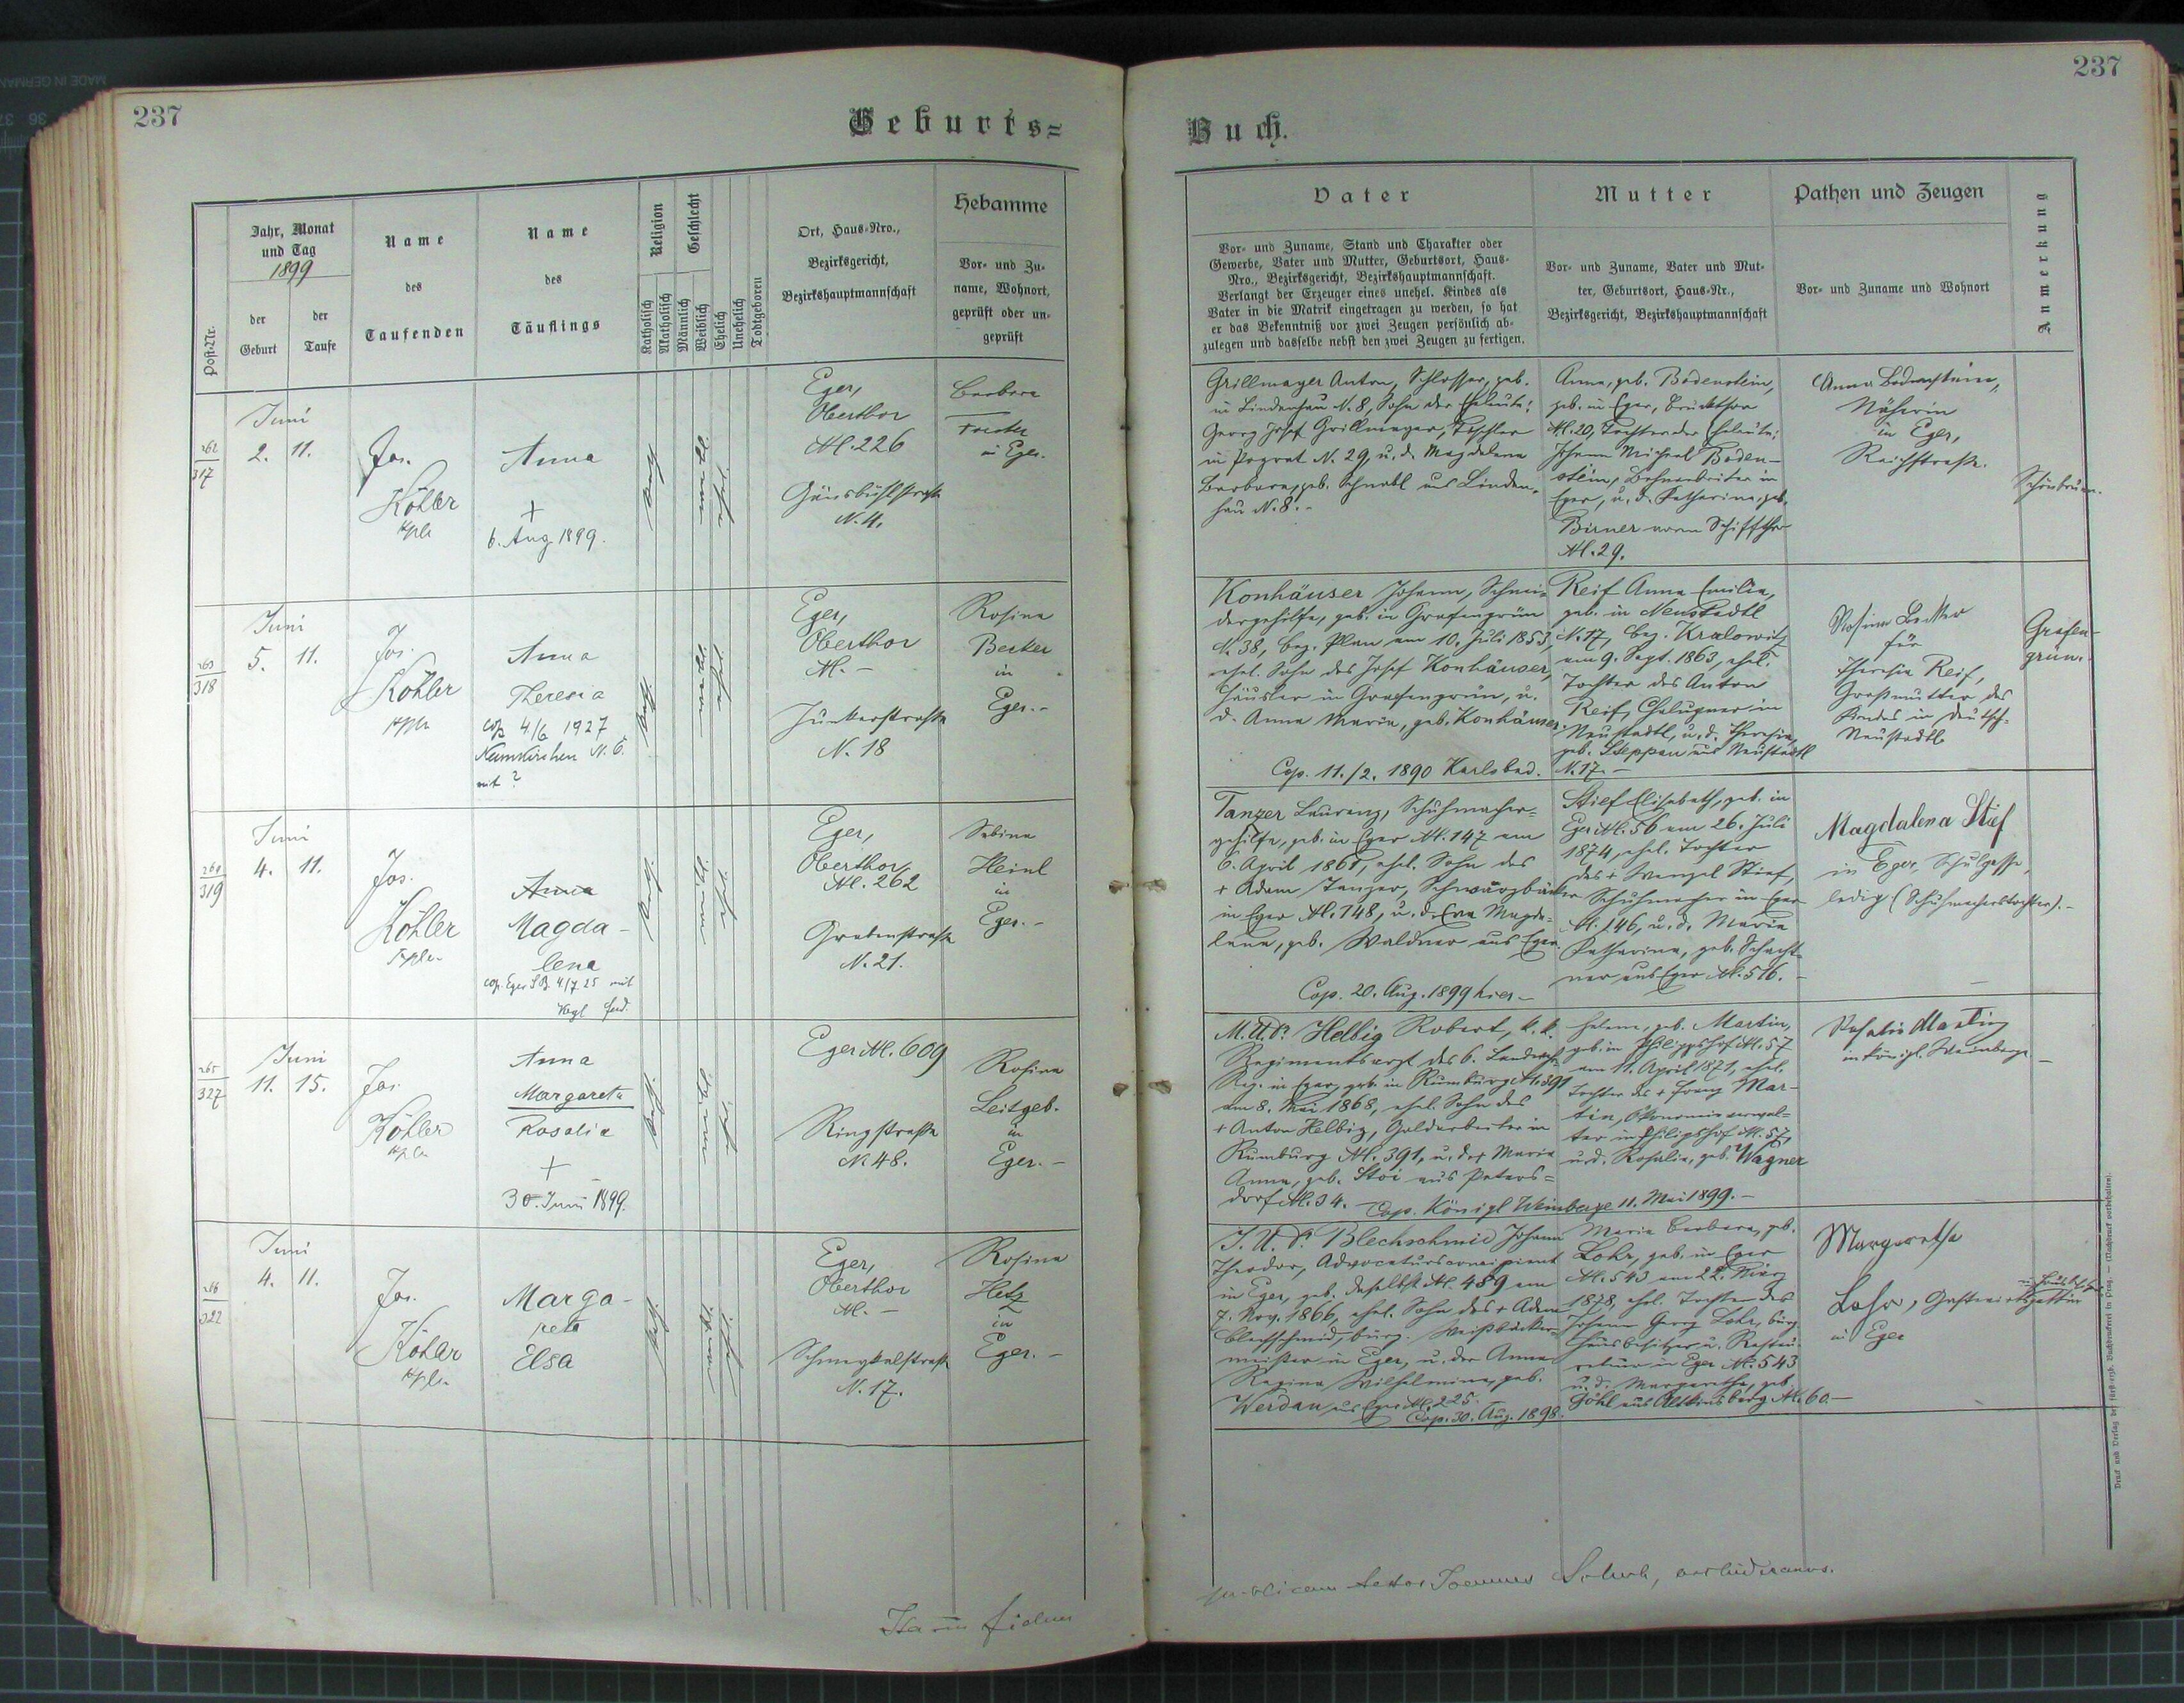 237
Geburts=
Jahr, Monat
und Tag
1899
Name
des
Taufenden
Name
des
Täuflings
Religion
Geschlecht
Ort, Haus-Nro.,
Bezirksgericht,
Bezirkshauptmannschaft
Hebamme
Vor- und Zu-
name, Wohnort,
geprüft oder un-
geprüft
Post-Nr.
der
Geburt
der
Taufe
Katholisch
Akatholisch
Männlich
Weiblich
Ehelich
Unehelich
Todtgeboren
262
317
Juni
2. 11.
Jos.
Köhler
Anna
+
6. Aug 1899.
Eger,
Oberthor
N. 226
Gänsbühlstraße
N. 4.
Barbara
in Eger.
263
318
Juni
5. 11.
Jos.
Köhler
Anna
Theresia
cop 4/6 1927
Neunkirchen N.Ö.
mit ?
Eger,
Oberthor
N. –
Junkerstraße
N. 18
Rosina
Becker
in
Eger. -
264
319
Juni
4. 11.
Jos.
Köhler
Anna
Magda-
lena
cop. Eger 4/7 25 mit
Eger,
Oberthor
N. 262
Grabenstraße
N. 21.
Sabina
Heinl
in
Eger. -
265
327
Juni
11. 15.
Jos.
Köhler
Anna
Margareta
Rosalia
+
30. Juni 1899.
Eger N. 609
Ringstraße
N. 48.
Rosina
Leitgeb.
in
Eger. -
266
322
Juni
4. 11.
Jos.
Köhler
Marga-
reta
Elsa
Eger,
Oberthor
N. –
Schmeykalstraße
N. 17.
Rosina
Hetz
in
Eger. -
fidem
237
Buch.
Vater
Vor- und Zuname, Stand und Charakter oder
Gewerbe, Vater und Mutter, Geburtsort, Haus-
Nro., Bezirksgericht, Bezirkshauptmannschaft.
Verlangt der Erzeuger eines unehel. Kindes als
Vater in die Matrik eingetragen zu werden, so hat
er das Bekenntniß vor zwei Zeugen persönlich ab-
zulegen und dasselbe nebst den zwei Zeugen zu fertigen.
Mutter
Vor- und Zuname, Vater und Mut-
ter, Geburtsort, Haus-Nr.,
Bezirksgericht, Bezirkshauptmannschaft
Pathen und Zeugen
Vor- und Zuname und Wohnort
Anmerkung
Grillmayer Anton, Schlosser, geb.
in Lindenhau N. 8, Sohn der Eheleute:
Georg Josef Grillmayer, Tischler
in Pograt N. 29, u. d. Magdalena
Barbara, geb. Schnabl aus Linden-
hau N. 8. -
Anna, geb. Bodenstein,
geb. in Eger, Bruckthor
N. 20, Tochter der Eheleute:
Johann Michael Boden-
stein, Bahnarbeiter in
Eger, u. d. Katharina, geb.
Birner vorm Schiffthor
N. 29.
Anna Bodenstein,
Näherin
in Eger,
Reichstraße.
Schönbrunn.
Konhäuser Johann, Schnei-
dergehilfe, geb. in Grafengrün
N. 38, bez. Plan am 10. Juli 1853,
ehel. Sohn des Josef Konhäuser,
Häusler in Grafengrün, u.
d. Anna Maria, geb. Konhäuser.
Cop. 11./2. 1890 Karlsbad.
Reif Anna Emilia,
geb. in Neustadtl
N. 17, bez. Kralowitz
am 9. Sept. 1863, ehel.
Tochter des Anton
Reif, Chalupner in
Neustadtl, u. d. Theresia,
geb. Steppan aus Neustadtl
N. 17. -
Rosina Becker
für
Theresia Reif,
Großmutter des
Kindes in Deutsch-
Neustadtl
Grafen-
grün.
Tanzer Laurenz, Schuhmacher-
gehilfe, geb. in Eger N. 147 am
6. April 1861, ehel. Sohn des
+ Adam Tanzer, Schwarzbäcker
in Eger N. 148, u. d. Eva Magda-
lena, geb. Waldner aus Eger.
Cop. 20. Aug. 1899 hier -
Stief Elisabeth, geb. in
Eger N. 56 am 26. Juli
1874, ehel. Tochter
des + Wenzel Stief,
Schuhmacher in Eger
N. 146, u. d. Maria
Katharina, geb. Schacht-
ner aus Eger N. 516. -
Magdalena Stief
in Eger, Schulgasse,
ledig (Schuhmacherstochter). -
M.U.Dr. Helbig Robert, k. k.
Regimentsarzt des 6. Landwehr
Reg. in Eger, geb. in Rumburg N. 391
am 8. Mai 1868, ehel. Sohn des
+ Anton Helbig, Goldarbeiter in
Rumburg N. 391, u. der Maria
Anna, geb. Stoi aus Peters-
dorf N. 34. Cop. Königl Weinberge 11. Mai 1899. -
Helene, geb. Martin,
geb. in Philippshof N. 57
am 11. April 1871, ehel.
Tochter des + Franz Mar-
tin, Ökonomieverwal-
ter in Philipshof N. 57,
u. d. Rosalia, geb. Wagner
Rosalia Martin
in Königl. Weinberge -
J. U. Dr. Blechschmid Johann
Theodor, Advocaturscuncipient
in Eger, geb. daselbst N. 489 am
7. Nov. 1866, ehel. Sohn des + Adam
Blechschmid, bürg. Weißbäcker-
meister in Eger, u. der Anna
Regina Wilhelmina, geb.
Werdan aus Eger N. 225.
Cop. 30. Aug. 1898.
Maria Barbara, geb.
Lohr, geb. in Eger
N. 543 am 22. März
1878, ehel. Tochter des
Johann Georg Lohr, bürg.
Hausbesitzer u. Restau-
rateur in Eger N. 543
u. d. Margaretha, geb.
Göhl aus Altkinsberg N. 60 -
Margaretha
Lohr, Gastwirtsgattin
in Eger
Druck und Verlag der fürst-erzb. Buchdruckerei in Prag. — (Nachdruck vorbehalten).